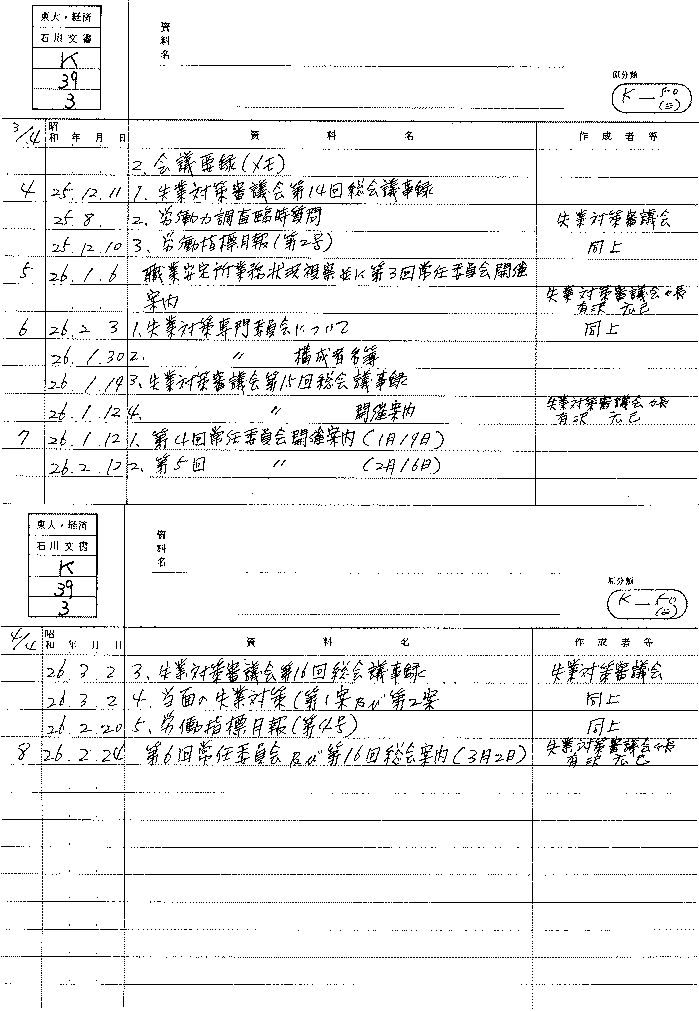 東大・経済
石川文書
K
39
3
資料名
原分類
K—50
(二)
3/4
昭和 年 月 日 資 料 名 作 成 者 等
2. 会議要録(メモ)
4 25.12.11 1. 失業対策審議会第14回総会議事録
25.8. 2. 労働力調査臨時質問 失業対策審議会
25.12.10 3. 労働指標月報(第2号) 同上
5 26.1.6 職業安定所業務状況視察並に第3回常任委員会開催
案内 失業対策審議会々長
有沢 広巳
6 26.2.3 1. 失業対策専門委員会について 同上
26.1.30 2. 〃 構成者名簿
26.1.19 3. 失業対策審議会第15回総会議事録
26.1.12 4. 〃 開催案内 失業対策審議会々長
有沢 広巳
7 26.1.12 1. 第4回常任委員会開催案内(1月19日)
26.2.12 2. 第5回 〃 (2月16日)
東大・経済
石川文書
K
39
3
資料名
原分類
K—50
(二)
4/4
昭和 年 月 日 資 料 名 作 成 者 等
26.3.2 3. 失業対策審議会第16回総会議事録 失業対策審議会
26.3.2 4. 当面の失業対策(第1案及び第2案 同上
26.2.20 5. 労働指標月報(第4号) 同上
8 26.2.24 第6回常任委員会及び第16回総会案内(3月2日) 失業対策審議会々長
有沢 広巳